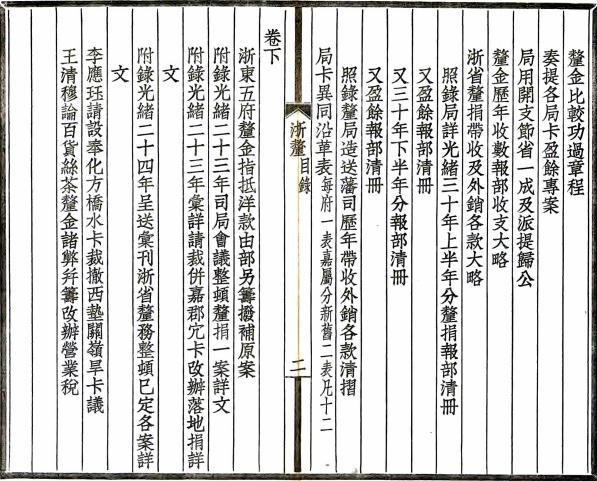 釐金比較功過章程
奏提各局卡盈餘專案
局用開支節省一成及派提歸公
釐金歷年收數報部收支大略
浙省釐捐帶收及外銷各款大略
照錄局詳光緒三十年上半年分釐捐報部清冊
又盈餘報部清冊
又三十年下半年分報部清冊
又盈餘報部清冊
照錄釐局造送藩司歷年帶收外銷各款清摺
局卡異同沿革表每府一表嘉屬分新舊二表凡十二
浙釐目錄
二
卷下
浙東五府釐金指抵洋款由部另籌撥補原案
附錄光緒二十三年司局會議整頓釐捐一案詳文
附錄光緒二十三年彙詳請裁併嘉郡冗卡改辦落地捐詳
文
附錄光緒二十四年呈送彙刊浙省釐務整頓已定各案詳
文
李應珏請設奉化方橋水卡裁撤西墊關嶺旱卡議
王清穆論百貨絲茶釐金諸弊幷籌改辦營業稅